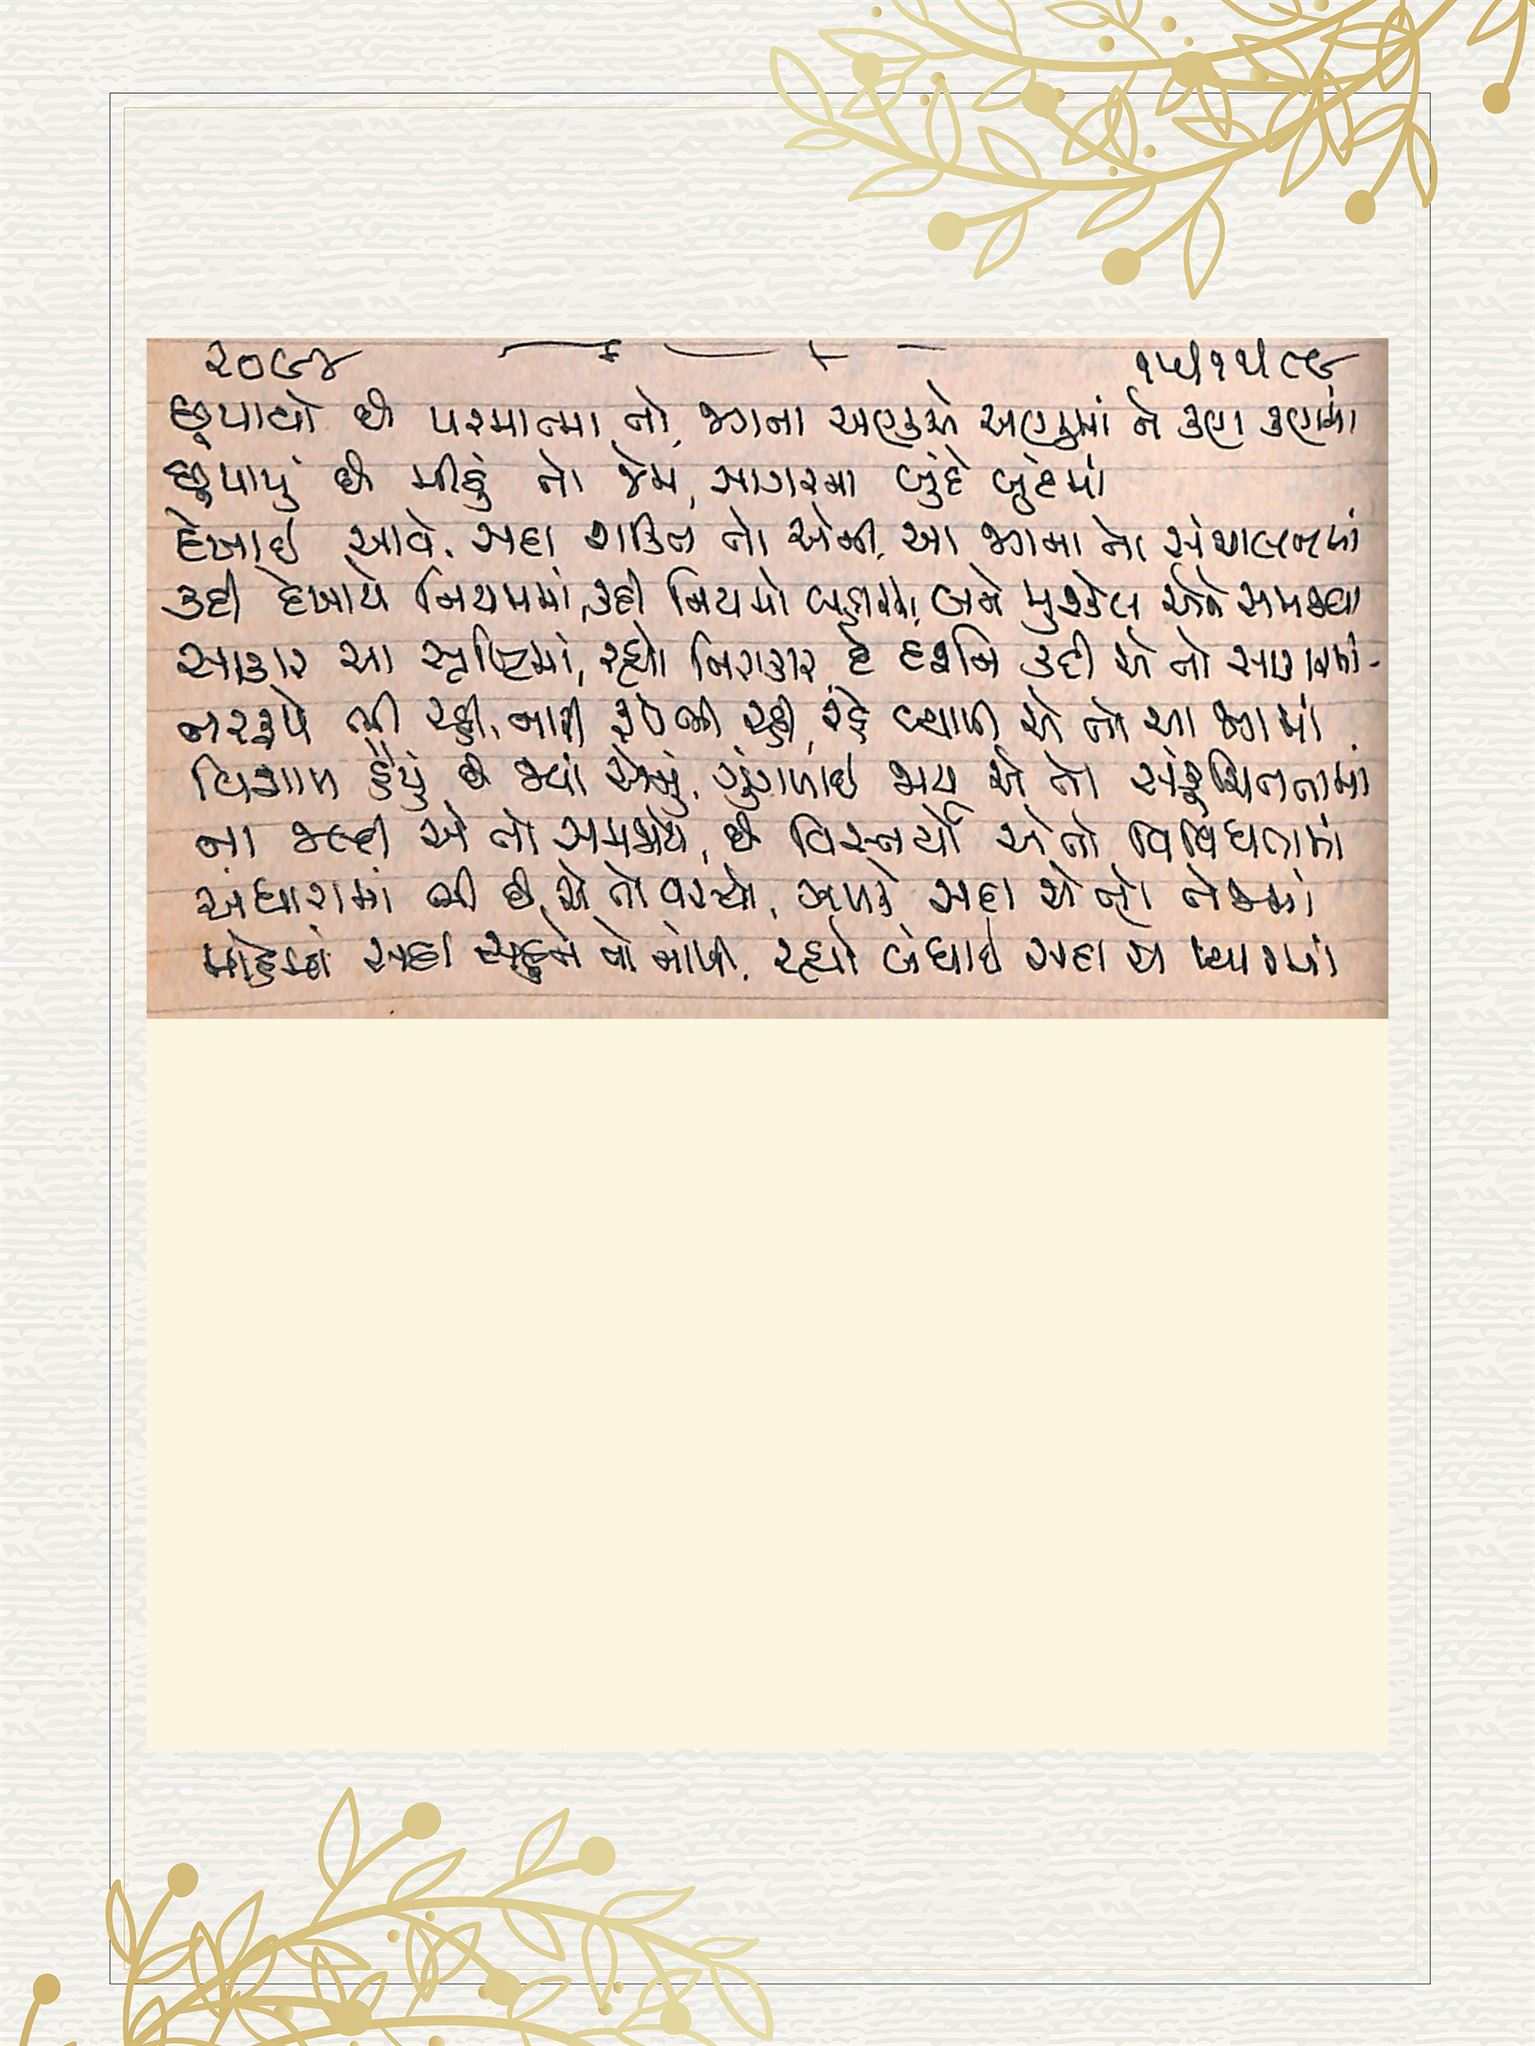 ૨૦૭૪ ૧૫/૧૧/૮૯
છૂપાયો છે પરમાત્મા તો, જગના અણુએ અણુમાં ને કણ કણમાં
છૂપાયું છે મીઠું તો જેમ, સાગરમા બુંદે બુંદમાં
દેખાઈ આવે, સદા શક્તિ તો એની, આ જગના તો સંચાલનમાં
કદી દેખાયે નિયમમાં, કદી નિયમો બહારમાં, બને મુશ્કેલ એને સમજવા
સાકાર આ સૃષ્ટિમાં, રહ્યો નિરાકાર, દે દર્શન કદી એ તો સાકારમાં
નરરૂપે ભી રહી, નારી રૂપે ભી રહી, રહે વ્યાપી એ તો આ જગમાં
વિશાળ હૈયું છે જ્યાં એનું, ગુંગળાઈ જાય એ તો સંકુચિતતામાં
ના જલ્દી એ તો સમજાયે, છે વિસ્તર્યો એ તો વિવિધતામાં
અંધારામાં ભી છે એ તો વસ્યો, ઝળકે સદા એ તો તેજમાં
સદા સહુને તો બાંધી, રહ્યો બંધાઈ સદા એ પ્યારમાં